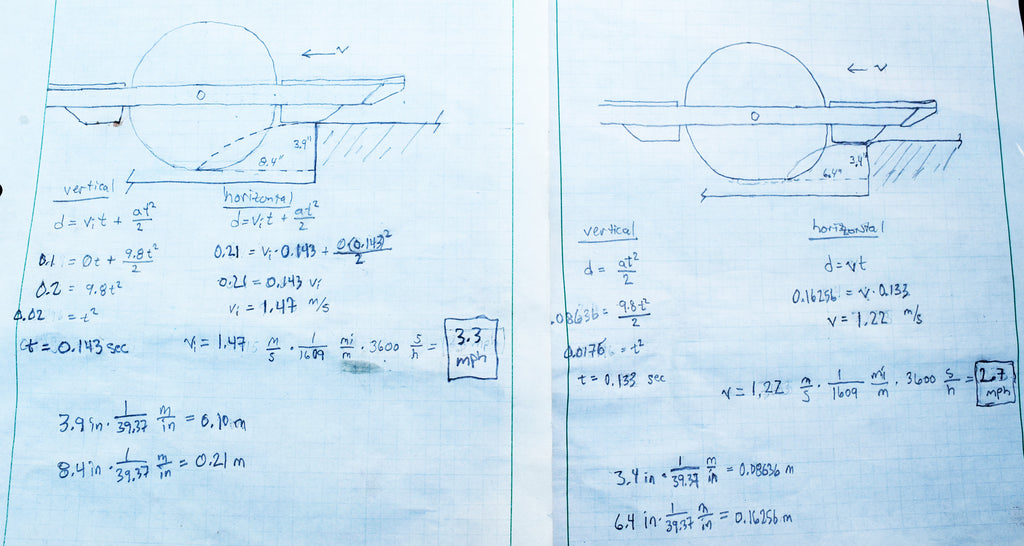 ← v
3.9"
8.4"
vertical
d = vᵢt + at²/2
0.1 = 0t + 9.8t²/2
0.2 = 9.8t²
0.02 = t²
t = 0.143 sec
horizontal
d = vᵢt + at²/2
0.21 = vᵢ · 0.143 + 0(0.143)²/2
0.21 = 0.143 vᵢ
vᵢ = 1.47 m/s
vᵢ = 1.47 m/s · 1/1609 mi/m · 3600 s/h = 3.3 mph
3.9 in · 1/39.37 m/in = 0.10 m
8.4 in · 1/39.37 m/in = 0.21 m
← v
3.4"
6.4"
vertical
d = at²/2
.08636 = 9.8t²/2
0.0176 = t²
t = 0.133 sec
horizontal
d = vt
0.16256 = v · 0.133
v = 1.22 m/s
v = 1.22 m/s · 1/1609 mi/m · 3600 s/h = 2.7 mph
3.4 in · 1/39.37 m/in = 0.08636 m
6.4 in · 1/39.37 m/in = 0.16256 m